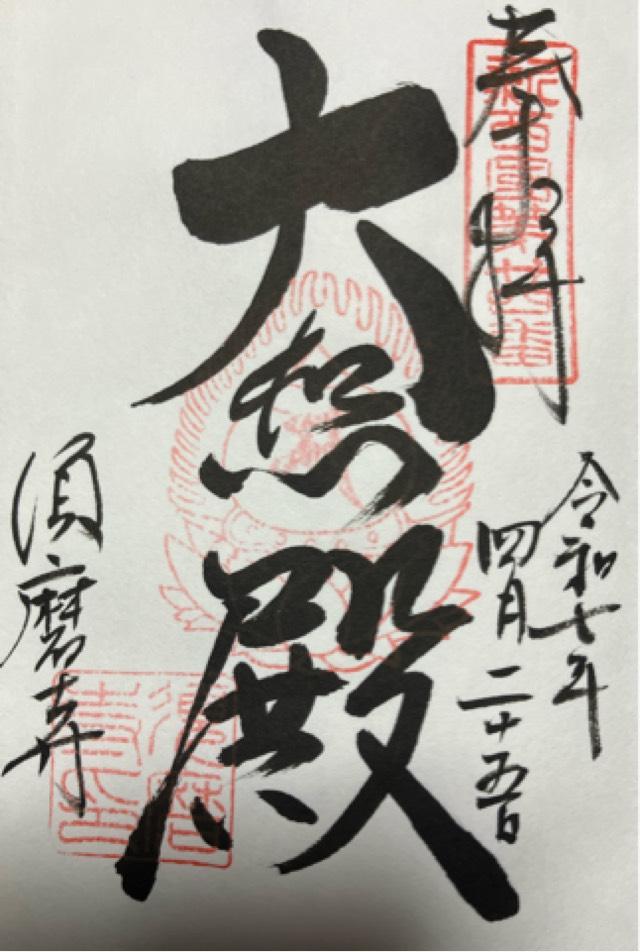 奉拝
令和七年
四月二十五日
大悲殿
須磨寺